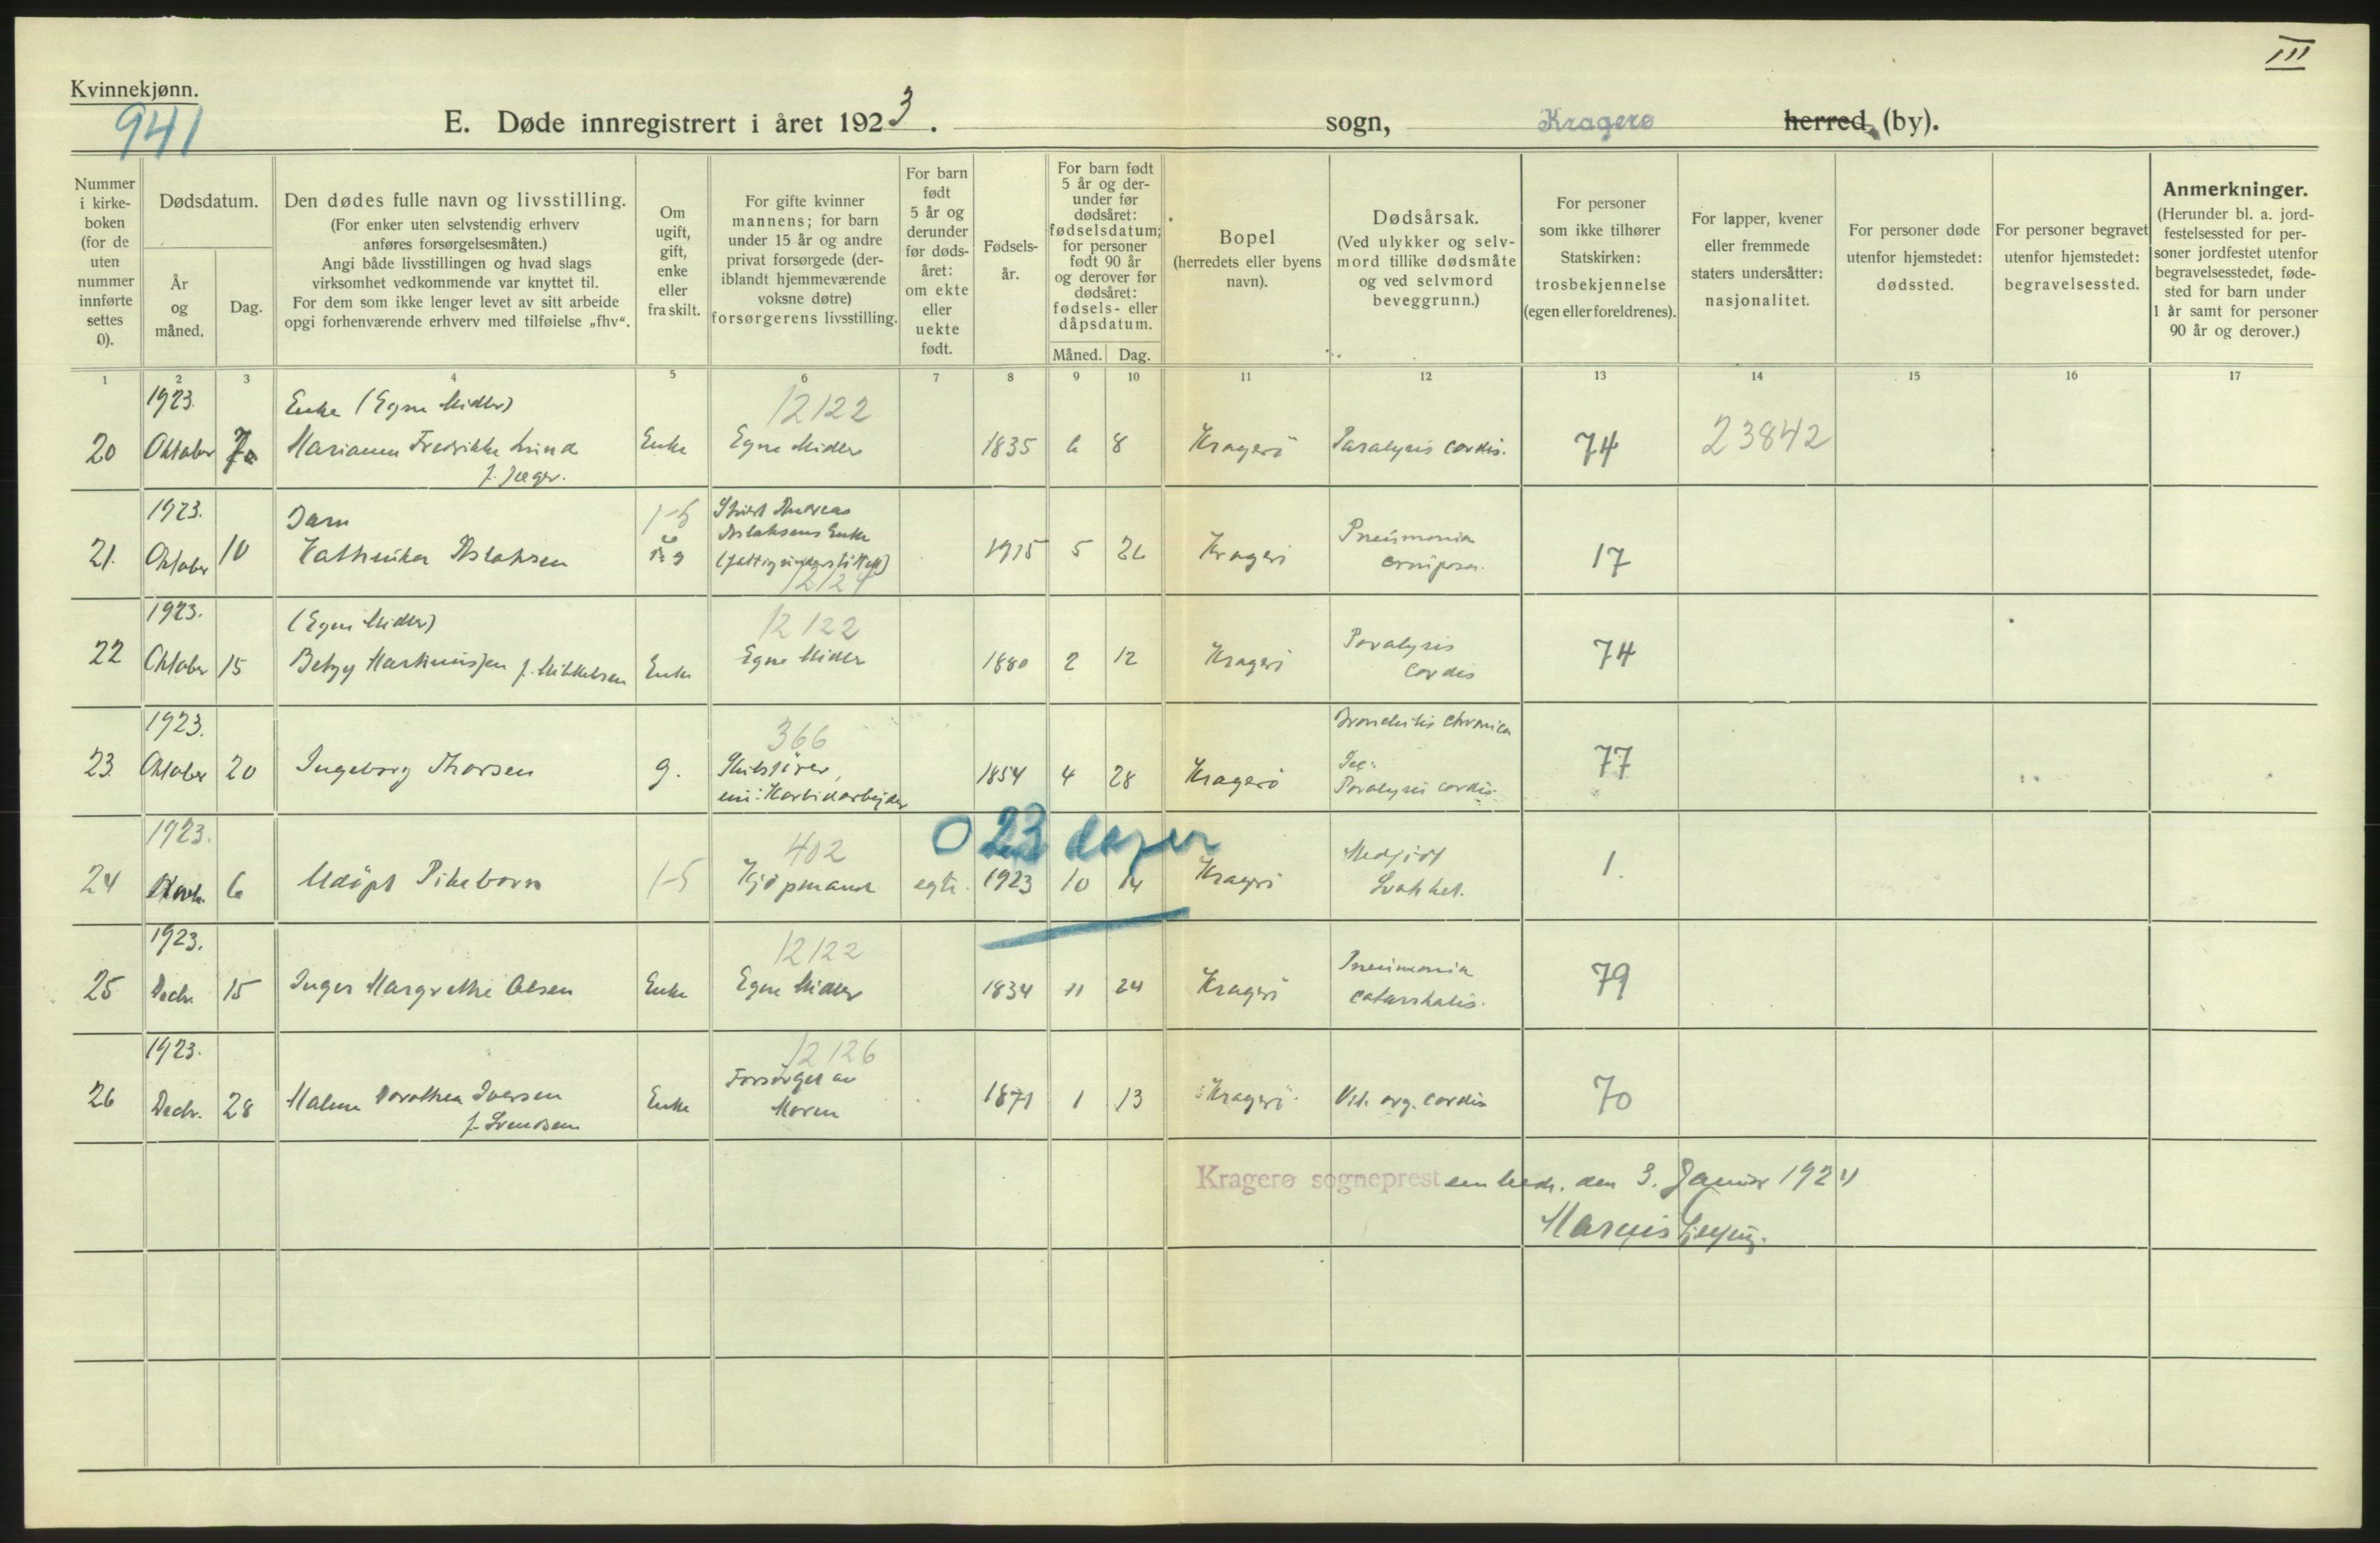 III
Kvinnekjønn.
941
E. Døde innregistrert i året 1923. sogn, Kragerø herred (by).
Nummer i kirkeboken (for de uten nummer innførte settes 0).
Dødsdatum.
År og måned.
Dag.
Den dødes fulle navn og livsstilling.
(For enker uten selvstendig erhverv anføres forsørgelsesmåten.)
Angi både livsstillingen og hvad slags virksomhet vedkommende var knyttet til.
For dem som ikke lenger levet av sitt arbeide opgi forhenværende erhverv med tilføielse „fhv“.
Om ugift, gift, enke eller fraskilt.
For gifte kvinner mannens; for barn under 15 år og andre privat forsørgede (deriblandt hjemmeværende voksne døtre) forsørgerens livsstilling.
For barn født 5 år og derunder før dødsåret: om ekte eller uekte født.
Fødselsår.
For barn født 5 år og derunder før dødsåret: fødselsdatum; for personer født 90 år og derover før dødsåret: fødsels- eller dåpsdatum.
Måned. Dag.
Bopel (herredets eller byens navn).
Dødsårsak.
(Ved ulykker og selvmord tillike dødsmåte og ved selvmord beveggrunn.)
For personer som ikke tilhører Statskirken: trosbekjennelse (egen eller foreldrenes).
For lapper, kvener eller fremmede staters undersåtter: nasjonalitet.
For personer døde utenfor hjemstedet: dødssted.
For personer begravet utenfor hjemstedet: begravelsessted.
Anmerkninger.
(Herunder bl. a. jordfestelsessted for personer jordfestet utenfor begravelsesstedet, fødested for barn under 1 år samt for personer 90 år og derover.)
1 2 3 4 5 6 7 8 9 10 11 12 13 14 15 16 17
1923. Enke (Egne Midler) 12122
20 Oktober 7 Marianne Fredrikke Lind Enke Egne Midler 1835 6 8 Kragerö Paralysis cordis. 74 23842
f. Jæger.
1923. Barn 1-5 Andreas
Aslaksens Enke Pneumonia
21. Oktober 10 Kathinka Aslaksen ug (fattigunderstöttet) 1915 5 26 Kragerö crouposa. 17
12124
1923. (Egne Midler) 12122
22 Oktober 15 Betzy Martinusen f. Mikkelsen Enke Egne Midler 1880 2 12 Kragerö Paralysis cordis 74
1923. 366 Bronchitis chronica
23. Oktober 20 Ingeborg Thorsen g. Skibsförer, 1854 4 28 Kragerö Paralysis cordis 77
Karbidarbejder
0 23 dager
1923. 402 Medfödt
24 Novb. 6 Udöpt Pikebarn 1-5 Kjöpmand egte. 1923 10 14 Kragerö Svakhet. 1.
1923. 12122 Pneumonia
25 Decbr. 15 Inger Margrethe Olsen Enke Egne Midler 1834 11 24 Kragerö catarrhalis. 79
1923. 12126
Forsörget av
26 Decbr. 28 Malene Dorothea Iversen Enke Moren 1871 1 13 Kragerö Vit. org. cordis 70
f. Svendsen
Kragerø sogneprestembede. den 3. Januar 1924
Marius